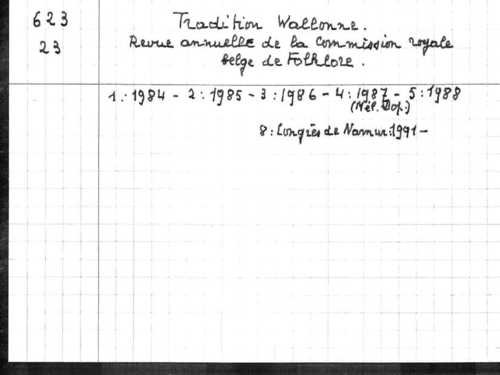 623
23
Tradition Wallonne.
Revue annuelle de la Commission royale
belge de Folklore.
1.: 1984 - 2: 1985 - 3: 1986 - 4: 1987 - 5: 1988
(Mél. Dop.)
8: Congrès de Namur: 1991 -